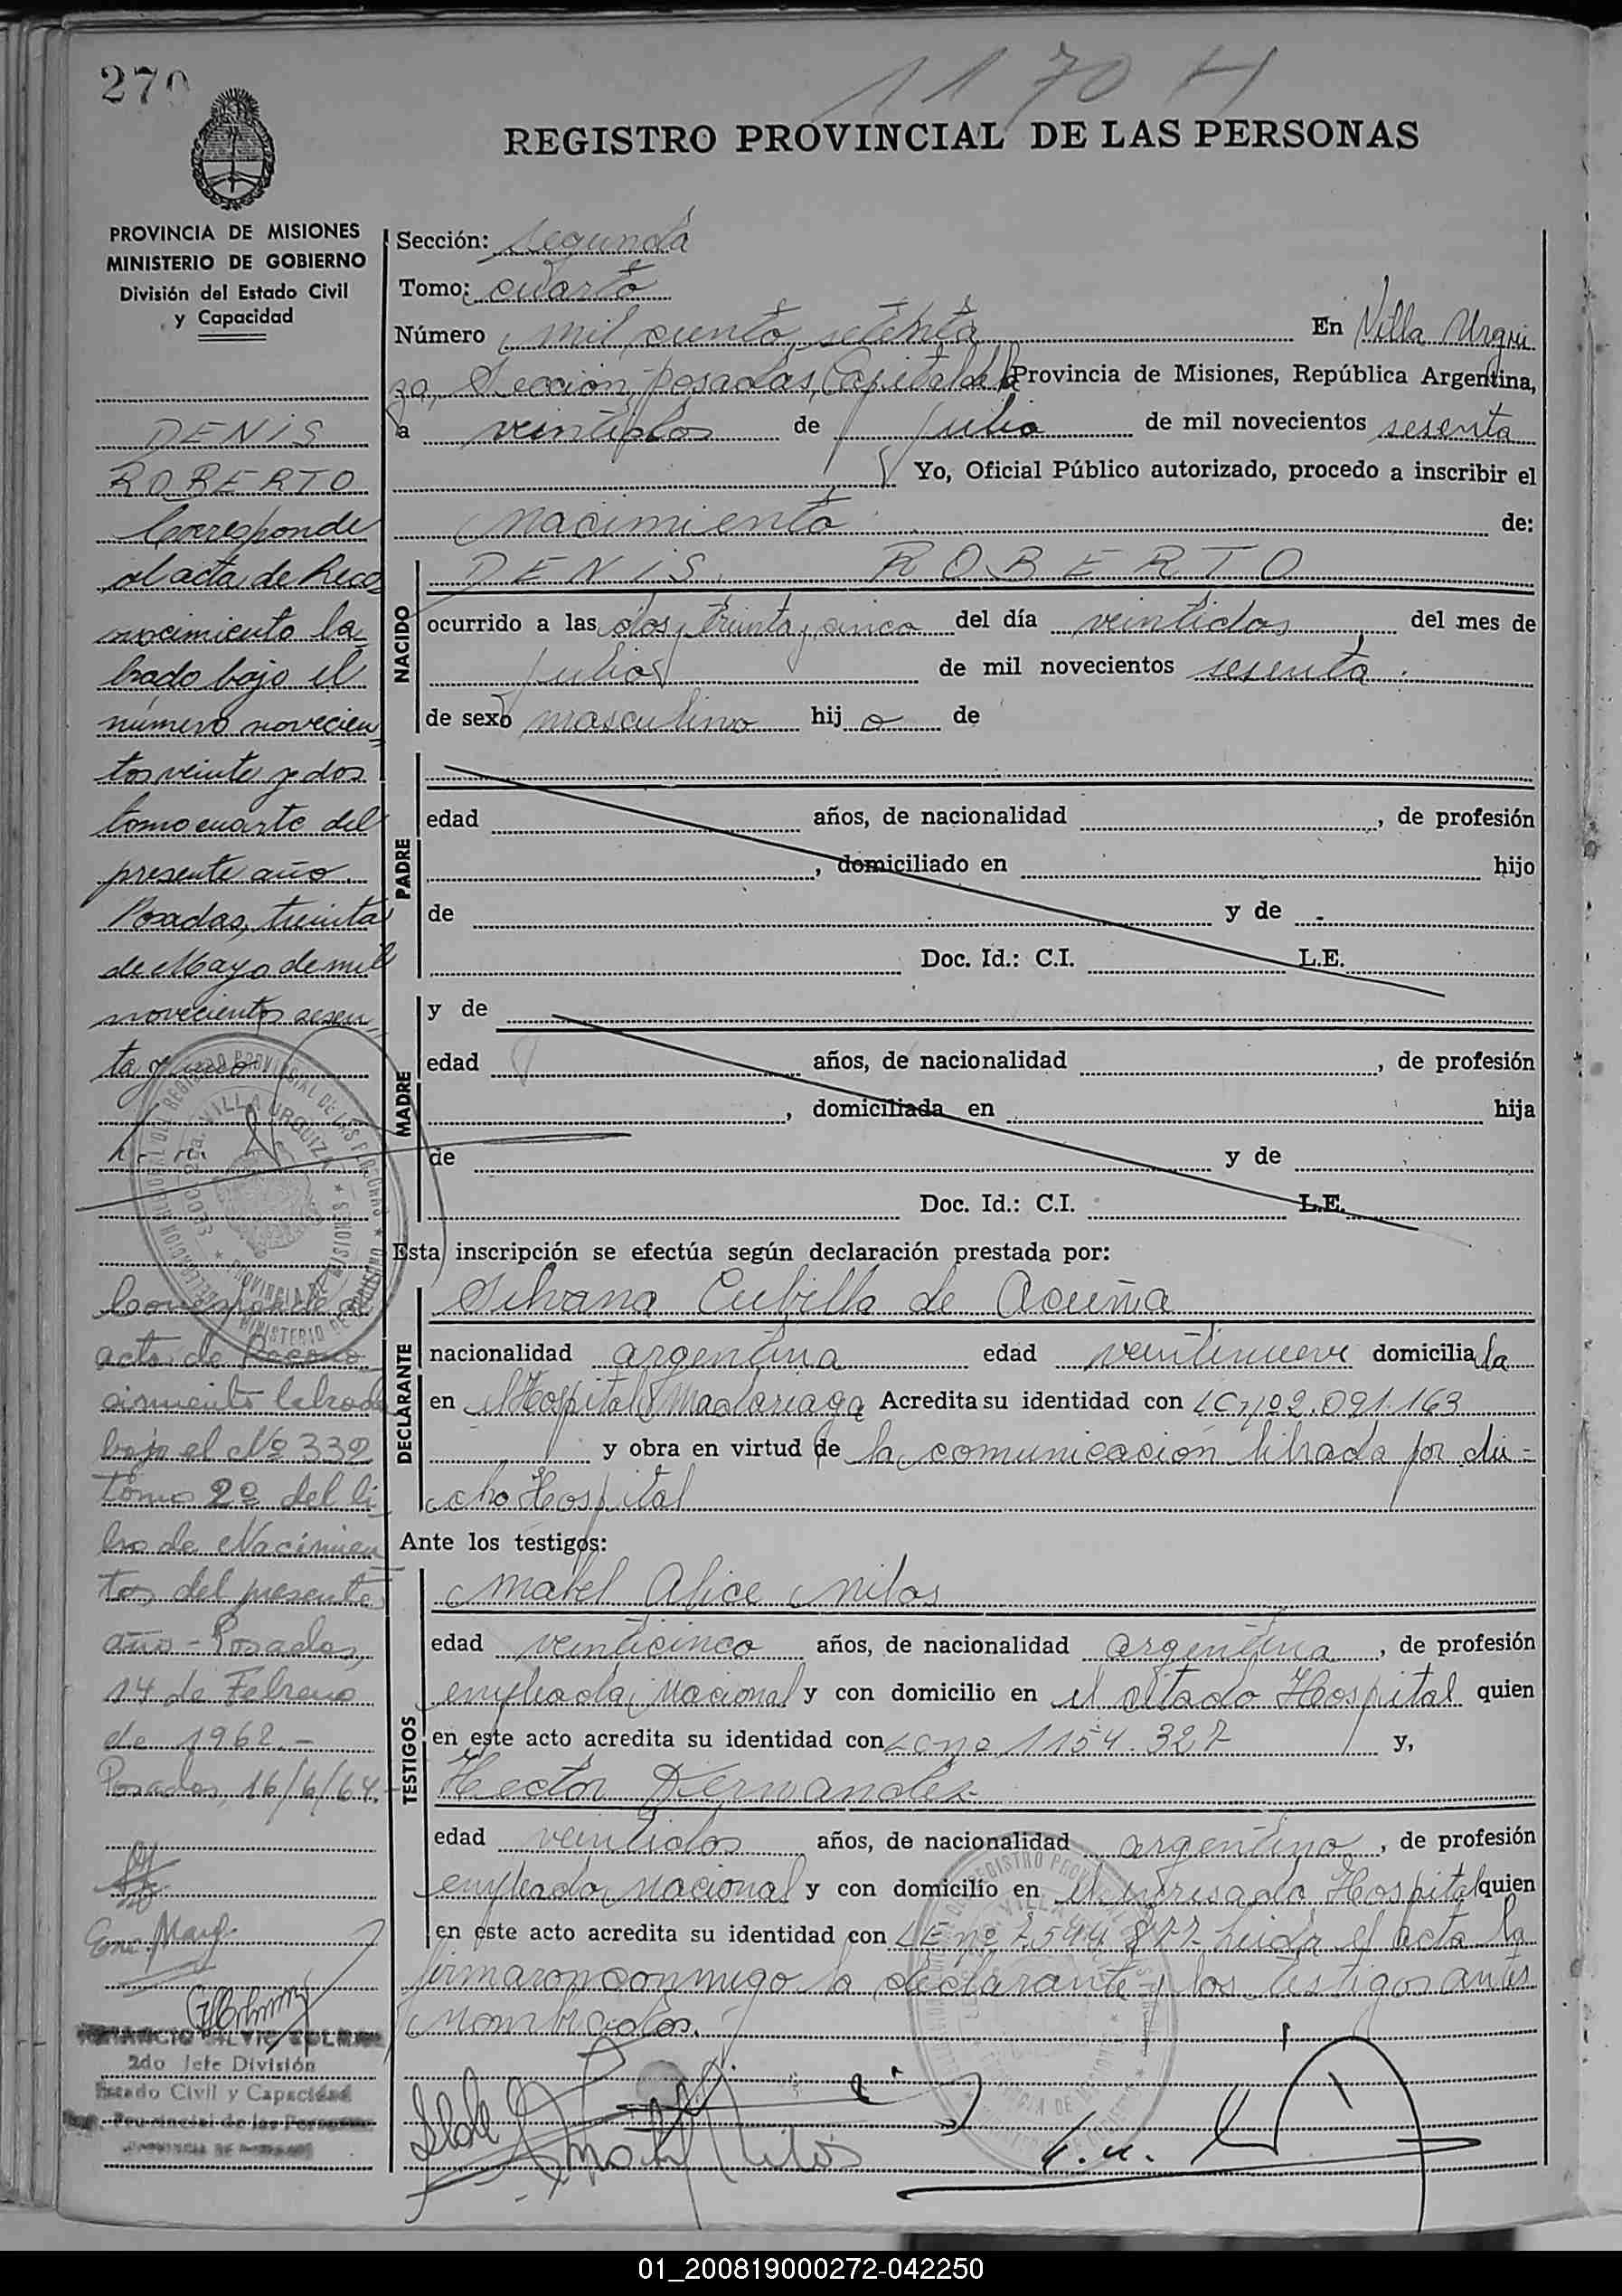 270
1170 H
REGISTRO PROVINCIAL DE LAS PERSONAS
PROVINCIA DE MISIONES
MINISTERIO DE GOBIERNO
División del Estado Civil
y Capacidad
DENIS
ROBERTO
Corresponde
al acta de Reco
nocimiento la
brado bajo el
número novecien
tos veinte y dos
tomo cuarto del
presente año.
Posadas, treinta
de Mayo de mil
novecientos sesen
ta y uno
Corresponde al
acta de Recono
cimiento labrado
bajo el Nº 332
tomo 2º del li
bro de Nacimien
tos del presente
año - Posadas,
14 de Febrero
de 1962.-
Posadas, 16/6/64.-
2do Jefe División
Estado Civil y Capacidad
Reg. Provincial de las Personas
Sección: segunda
Tomo: cuarto
Número mil ciento setenta En Villa Urqui
za, Sección Posadas, Capital de la Provincia de Misiones, República Argentina,
a veintidos de julio de mil novecientos sesenta
Yo, Oficial Público autorizado, procedo a inscribir el
nacimiento de:
NACIDO
DENIS ROBERTO
ocurrido a las dos y treinta y cinco del día veintidos del mes de
julio de mil novecientos sesenta.
de sexo masculino hijo de
PADRE
edad años, de nacionalidad , de profesión
, domiciliado en hijo
de y de
Doc. Id.: C.I. L.E.
MADRE
y de
edad años, de nacionalidad , de profesión
, domiciliada en hija
de y de
Doc. Id.: C.I. L.E.
Esta inscripción se efectúa según declaración prestada por:
DECLARANTE
Silvana Cubilla de Acuña
nacionalidad argentina edad veintinueve domicilia da
en el Hospital Madariaga Acredita su identidad con LC nº 2.091.163
y obra en virtud de la comunicación librada por di-
cho Hospital
Ante los testigos:
TESTIGOS
Mabel Alice Nilos
edad veinticinco años, de nacionalidad argentina, de profesión
empleada nacional y con domicilio en el citado Hospital quien
en este acto acredita su identidad con LC nº 1154.327 y,
Hector Hernandez
edad veintidos años, de nacionalidad argentino, de profesión
empleado nacional y con domicilio en el expresado Hospital quien
en este acto acredita su identidad con LE nº 7.544.877 Leida el acta la
firmaron conmigo la declarante y los testigos antes
nombrados.
01_200819000272-042250